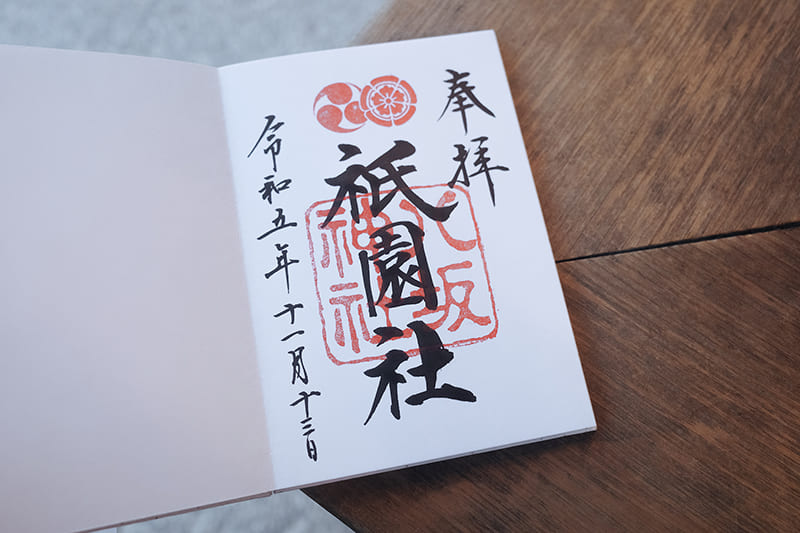 奉拝
祇園社
八坂神社
令和五年十一月十三日